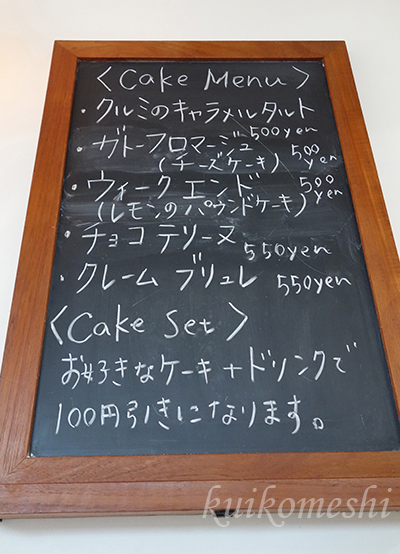 〈Cake Menu〉
・クルミのキャラメルタルト
500yen
・ガトーフロマージュ
(チーズケーキ) 500yen
・ウィークエンド
(レモンのパウンドケーキ) 500yen
・チョコテリーヌ
550yen
・クレームブリュレ
550yen
〈Cake Set〉
お好きなケーキ+ドリンクで
100円引きになります。
kuikomeshi